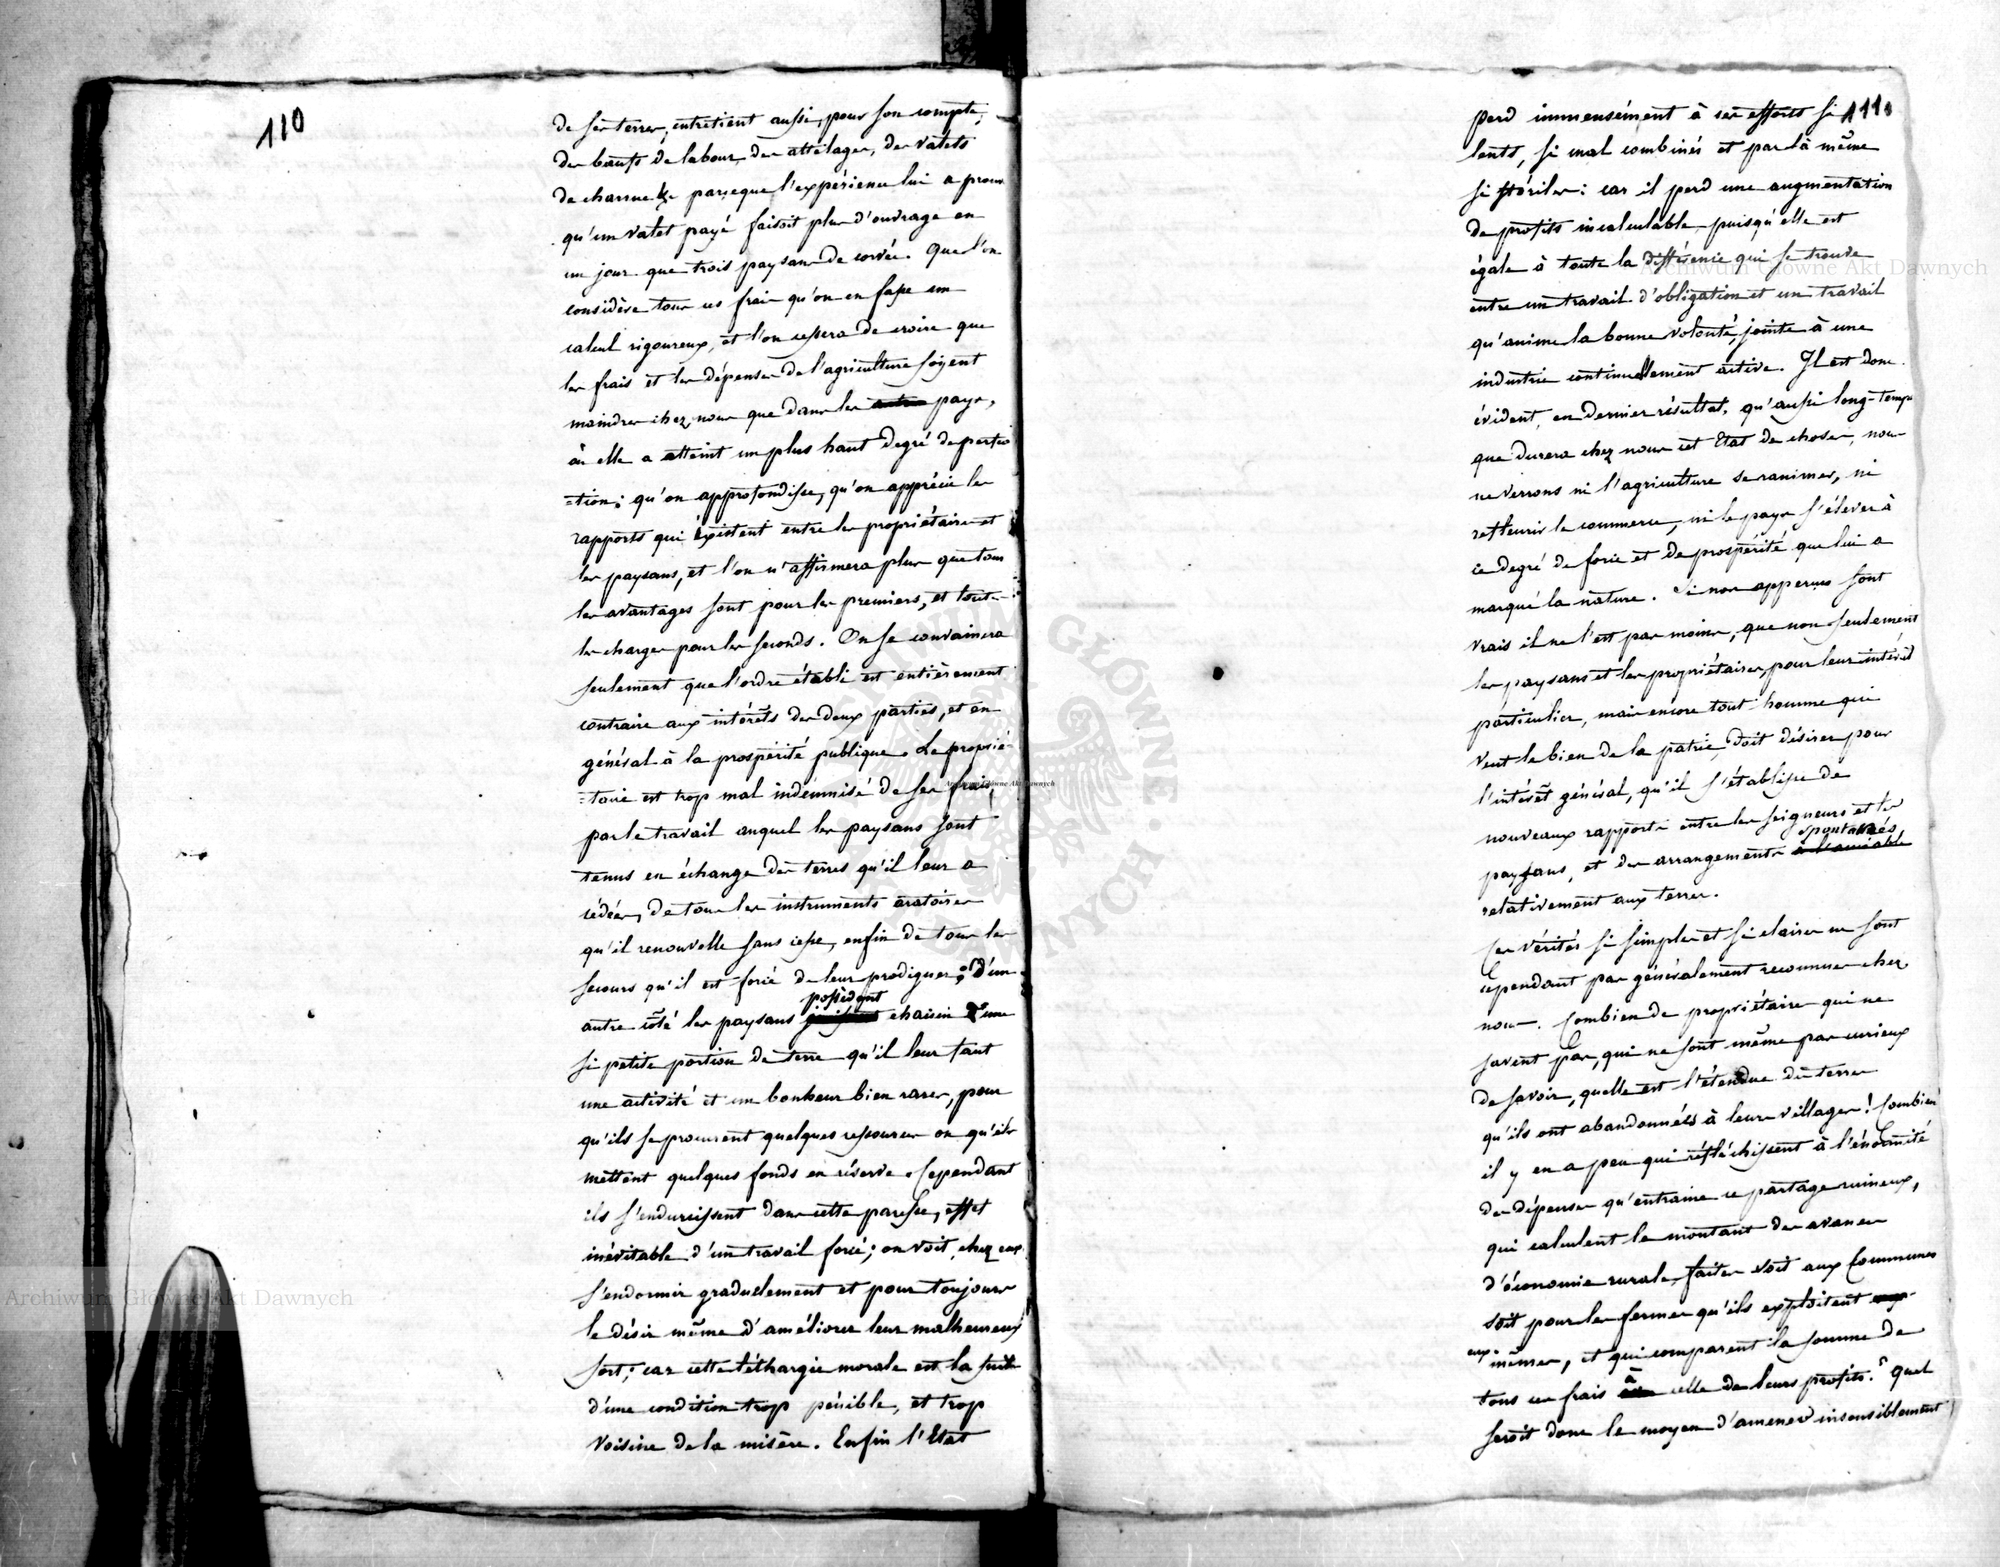 110
de ses terres, entretient aussi, pour son compte,
des bœufs de labour, des attelages, des valets
de charrue &c parceque l'expérience lui a prouv
qu'un valet payé faisoit plus d'ouvrage en
un jour que trois paysans de corvée. Que l'on
considère tous ces frais qu'on en fasse un
calcul rigoureux, et l'on cessera de croire que
les frais et les dépenses de l'agriculture soyent
moindres chez nous que dans les autres pays,
où elle a atteint un plus haut degré de perfec
=tion; qu'on approfondisse, qu'on apprécie les
rapports qui éxistent entre les propriétaires et
les paysans, et l'on n'affirmera plus que tous
les avantages sont pour les premiers, et toutes
les charges pour les seconds. On se convaincra
seulement que l'ordre établi est entièrement
contraire aux intérêts des deux parties, et en
général à la prospérité publique. Le proprié-
=taire est trop mal indémnisé de ses frais,
par le travail auquel les paysans sont
tenus en échange des terres qu'il leur a
cédées, de tous les instruments aratoires
qu'il renouvelle sans cesse, enfin de tous les
secours qu'il est forcé de leur prodiguer; d'un
possèdent
autre côté les paysans chacun d'une
si petite portion de terre qu'il leur faut
une activité et un bonheur bien rares, pour
qu'ils se procurent quelques ressources ou qu'ils
mettent quelques fonds en réserve. Cependant
ils s'endurcissent dans cette paresse, effet
inévitable d'un travail forcé; on voit, chez eux
s'endormir graduelement et pour toujours
le désir même d'améliorer leur malheureux
sort; car cette léthargie morale est la suite
d'une condition trop pénible, et trop
voisine de la misère. Enfin l'Etat
111
perd immensément à ces efforts si
lents, si mal combinés et par là même
si stériles: car il perd une augmentation
de profits incalculable, puisqu'elle est
égale à toute la différence qui se trouve
entre un travail d'obligation et un travail
qu'anime la bonne volonté, jointe à une
industrie continuellement active. Il est donc
évident, en dernier résultat, qu'aussi long-temps
que durera chez nous cet Etat de choses, nous
ne verrons ni l'agriculture se ranimer, ni
refleurir le commerce, ni le pays s'élever à
ce degré de force et de prospérité que lui a
marqué la nature. Si nos apperçus sont
vrais il ne l'est pas moins, que non seulement
les paysans et les propriétaires, pour leur intérêt
particulier, mais encore tout homme qui
veut le bien de la patrie, doit désirer pour
l'intérêt général, qu'il s'établisse de
nouveaux rapports entre les seigneurs et les
spontanés,
paysans, et des arrangements à l'amiable
relativement aux terres.
Ces vérités si simples et si claires ne sont
cependant pas généralement reconnues chez
nous. Combien de propriétaires qui ne
savent pas, qui ne sont même pas curieux
de savoir, quelle est l'étendue des terres
qu'ils ont abandonnées à leurs villages! Combien
il y en a peu qui réfléchissent à l'énormité
des dépenses qu'entraine ce partage ruineux,
qui calculent le montant des avances
d'économie rurale, faites soit aux Communes
soit pour les fermes qu'ils exploitent
eux-mêmes, et qui comparent la somme de
à
tous ces frais celle de leurs profits? Quel
seroit donc le moyen d'amener insensiblement
Archiwum Główne Akt Dawnych
Archiwum Główne Akt Dawnych
Archiwum Główne Akt Dawnych